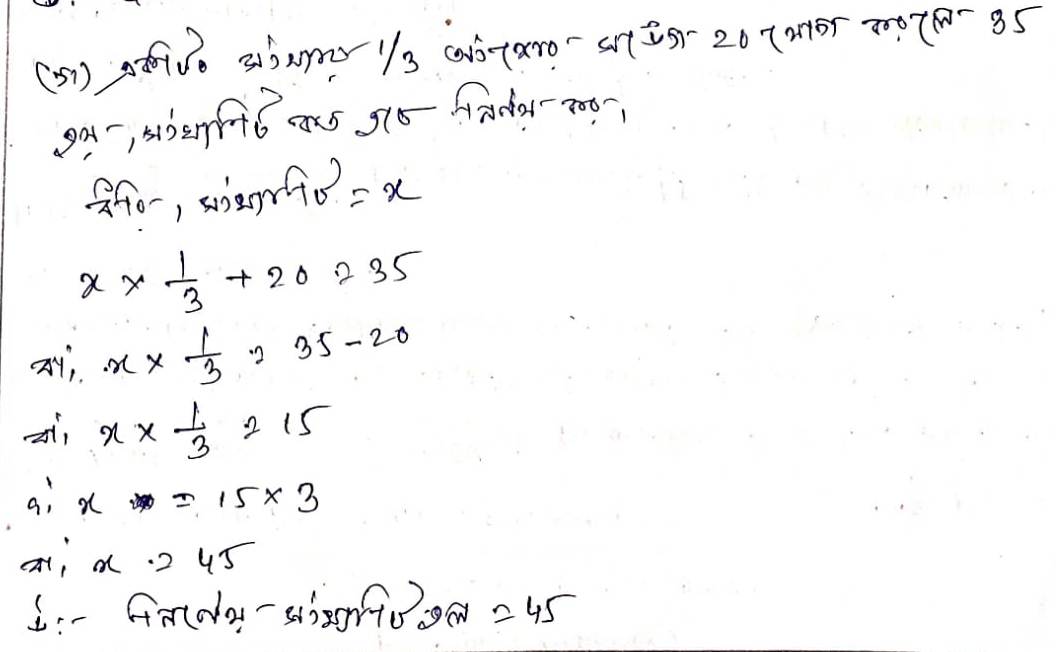 একটি সংখ্যার 1/3 অংশের সঙ্গে 20 যোগ করলে 35
হয়, সংখ্যাটি কত হবে নির্ণয় কর,
ধরি, সংখ্যাটি = x
x × 1/3 + 20 = 35
বা, x × 1/3 = 35 - 20
বা, x × 1/3 = 15
বা, x = 15 × 3
বা, x = 45
উঃ- নির্ণেয় সংখ্যাটি হল = 45